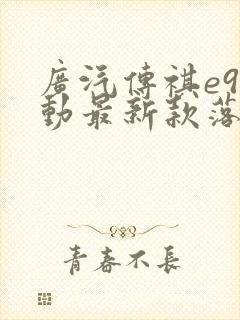 廣汽傳祺e9
動最新款落
青春不長